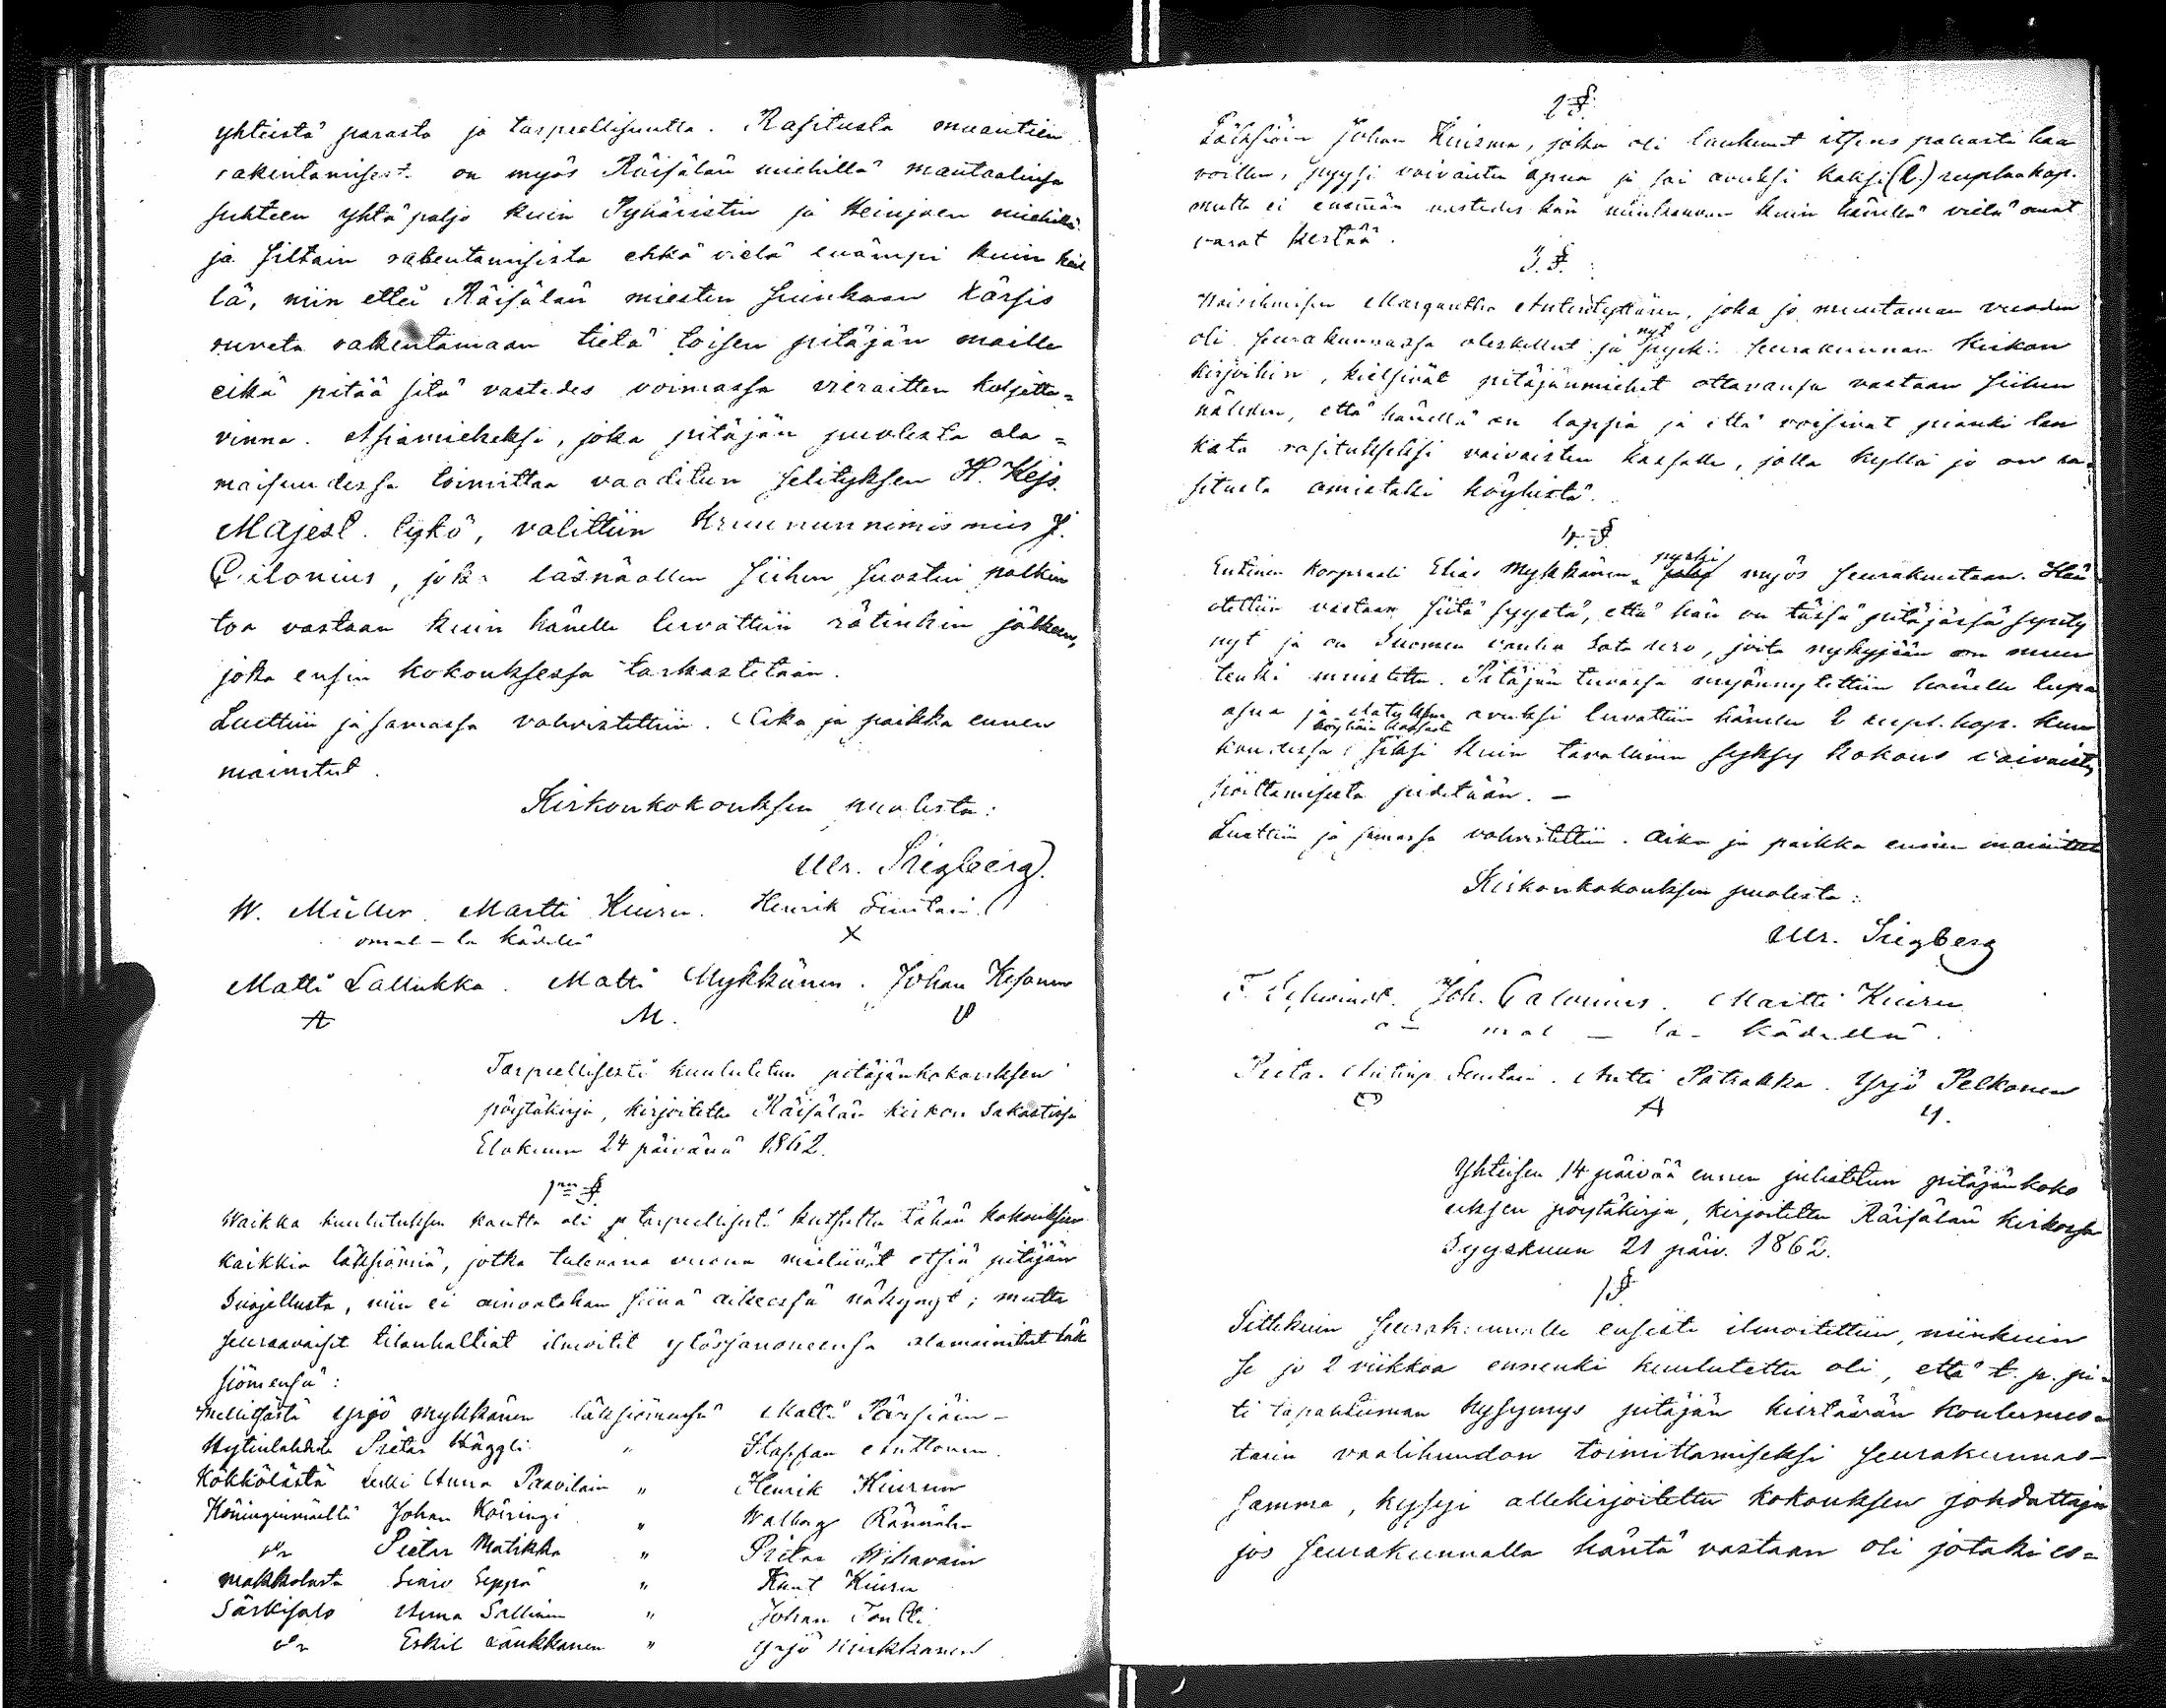 yhteistä parasta ja tarpeellisuutta. Rasitusta maantien
rakentamisesta on myös Räisälän miehillä mantaalinsa
suhteen yhtä paljo kuin Pyhäristin ja Heinjoen miehillä
ja siltain rakentamisista ehkä vielä enämpi kuin heil
lä, niin ettei Räisälän miesten suinkaan kärsis
ruveta rakentamaan tietä toisen pitäjän maille
eikä pitää sitä vastedes voimassa vieraitten kuljetta=
vinna. Asiamieheksi, joka pitäjän puolesta ala=
maisuudessa toimittaa vaaditun selityksen H. Kejs.
Majest. tykö, valittiin kruununnimismies J.
joka läsnäollen siihen suostui palkin
toa vastaan kuin hänelle luvattiin rätinkin jälkeen,
joka ensin kokouksessa tarkastetaan.
Luettiin ja samassa vahvistettiin. Aika ja paikka ennen
mainitut.
Kirkonkokouksen puolesta:
Sirgberg.
W. Müller. Martti Kiuru. Henrik
omal-la kädellä X
Matti Lallukka. Matti Mykkänen. Johan
A M.
Tarpeellisesti kuulutetun pitäjänkokouksen
pöytäkirja, kirjoitettu Räisälän kirkon Sakastissa
Elokuun 24 päivänä 1862.
1nen §.
Waikka kuulutuksen kautta oli ja tarpeellisesti kutsuttu tähän kokouksen
kaikkia läksiömiä, jotka tulevana vuonna mielivät etsiä pitäjän
Suojellusta, niin ei ainoatakaan siinä aikeessa näkynyt; mutta
seuraavaiset tilanhaltiat ilmoitit ylösjanoneensa alamainitut läk
siömensä:
Yrjö Mykkänen läksiömensä Matti
Hytinlahdelta Pietar Häggli " Staffan Anttonen
Kökkölästä Leski Anna Paavilain " Henrik Kiurun
Johan Köiringi " Walborg
do Pietar Matikka " Pietar Wihavain
Makkolasta Simo Seppä " Knut Kiuru
Särkisalo Anna Sallinen " Johan Tontti
do Eskil Laukkanen " Yrjö Kiukkanen
2 §.
Läksiöin Johan Kuisma, joka oli laukunut itsens pahasti haa
voillen, pyysi vaivaisten apua ja sai avuksi kaksi (2.) ruplaa hop.
mutta ei enemmän vastedes kun niinkauvan kuin hänellä vielä omat
varat kestää.
3. §.
Waisihmisen Margaretha Antintyttären, joka jo muutaman vuoden
oli seurakunnassa oleskellut ja nyt pyrki seurakunnan kirkon
kirjoihin, kielsivät pitäjänmiehet ottavansa vastaan siihen
nähden, että hänellä on lapsia ja että voisivat pianki lan
keta rasitukseksi vaivaisten kassalle, jolla kyllä jo on ra=
situsta omistaki köyhistä.
4. §.
Entinen korpraali Elias Mykkänen pyrki myös seurakuntaan. Hän
otettiin vastaan siitä syystä, että hän on tässä pitäjässä synty
nyt ja on Suomen vanha Sota uro, joita nykyjään on muu
tenki muistettu. Pitäjän tuvassa myönnytettiin hänelle lupa
asua ja elatuksen avuksi luvattiin hänelle 2 rupl. hop. kuu
köyhäin kassasta
kaudessa siksi kuin tavallinen syksy kokous vaivaisten
sioittamisesta pidetään. —
Luettiin ja samassa vahvistettiin. Aika ja paikka ennen mainitut
Kirkonkokouksen puolesta:
Sirgberg
F. Joh. Martti Kiuru
o- mal - la- kädellä.
Pieta. Antinp. Antti Patrakka. Yrjö Pelkonen
A Y.
Yhteisen 14 päivää ennen julistetun pitäjänkoko
uksen pöytäkirja, kirjoitettu Räisälän kirkossa
Syyskuun 21 päiv. 1862.
1 §.
Sittekuin seurakunnalle ensisti ilmoitettiin, niinkuin
se jo 2 viikkoa ennenki kuulutettu oli, että t. p. pi=
ti tapahtuman kysymys pitäjän kiertävän koulumes=
tarin vaalihuudon toimittamiseksi seurakunnas-
samma, kysyi allekirjoitettu kokouksen johdattaja
jos seurakunnalla häntä vastaan oli jotaki es=